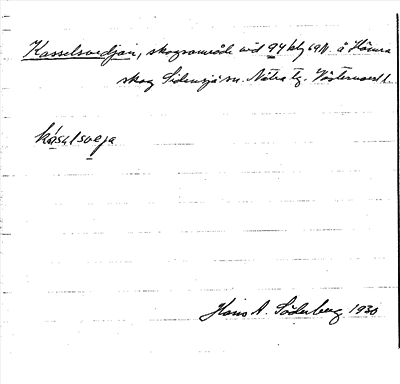 Kasselsvedjan, skogsområde vid 94 kbg 69N. å
skog Sidensjö sn. Nätra tg. Västernorrl.
Hans A. Söderberg 1930